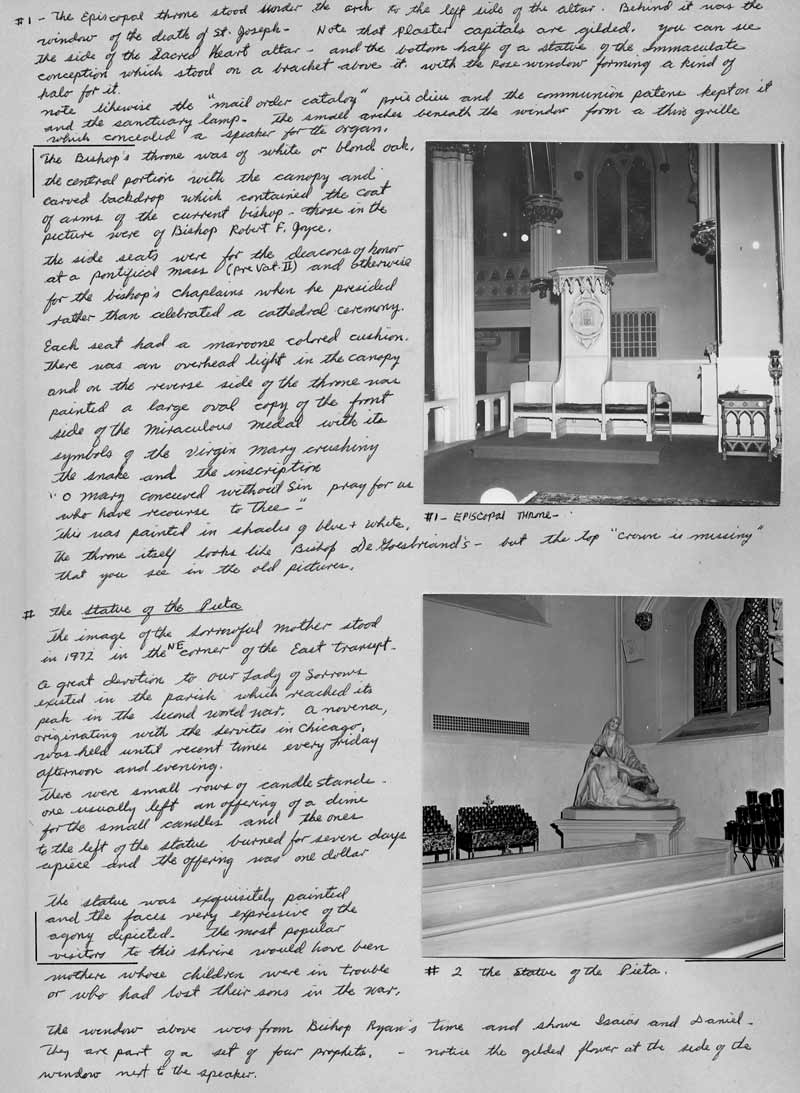 #1 - The Episcopal throne stood under the arch to the left side of the altar. Behind it was the
window of the death of St. Joseph - Note that plaster capitals are gilded. you can see
the side of the Sacred Heart altar - and the bottom half of a statue of the Immaculate
conception which stood on a bracket above it. with the Rose window forming a kind of
halo for it.
note likewise the "mail order catalog" prie dieu and the communion patens kept on it
and the sanctuary lamp - The small arches beneath the window form a thin grille
which concealed a speaker for the organ.
The Bishop's throne was of white or blond oak,
the central portion with the canopy and
carved backdrop which contained the coat
of arms of the current bishop - those in the
picture were of Bishop Robert F. Joyce.
the side seats were for the deacons of honor
at a pontifical mass (pre Vat. II) and otherwise
for the bishop's chaplains when he presided
rather than celebrated a cathedral ceremony.
Each seat had a maroone colored cushion.
There was an overhead light in the canopy
and on the reverse side of the throne was
painted a large oval copy of the front
side of the Miraculous medal with its
symbols of the Virgin Mary crushing
the snake and the inscription
"O Mary conceived without Sin pray for us
who have recourse to Thee -"
This was painted in shades of blue + white.
The throne itself looks like Bishop De Goesbriand's - but the top "crown is missing"
that you see in the old pictures.
#1 - EPISCOPAL THRONE -
# The Statue of the Pieta
The image of the Sorrowful Mother stood
in 1972 in the NE corner of the East transept -
A great devotion to Our Lady of Sorrows
existed in the parish which reached its
peak in the second world war. A novena,
originating with the servites in Chicago,
was held until recent times every Friday
afternoon and evening.
There were small rows of candle stands -
one usually left an offering of a dime
for the small candles and the ones
to the left of the statue burned for seven days
apiece and the offering was one dollar
The statue was exquisitely painted
and the faces very expressive of the
agony depicted - The most popular
visitors to this shrine would have been
mothers whose children were in trouble
or who had lost their sons in the war.
# 2 The Statue of the Pieta.
The window above was from Bishop Ryan's time and shows Isaias and Daniel -
They are part of a set of four prophets. - notice the gilded flower at the side of the
window next to the speaker.